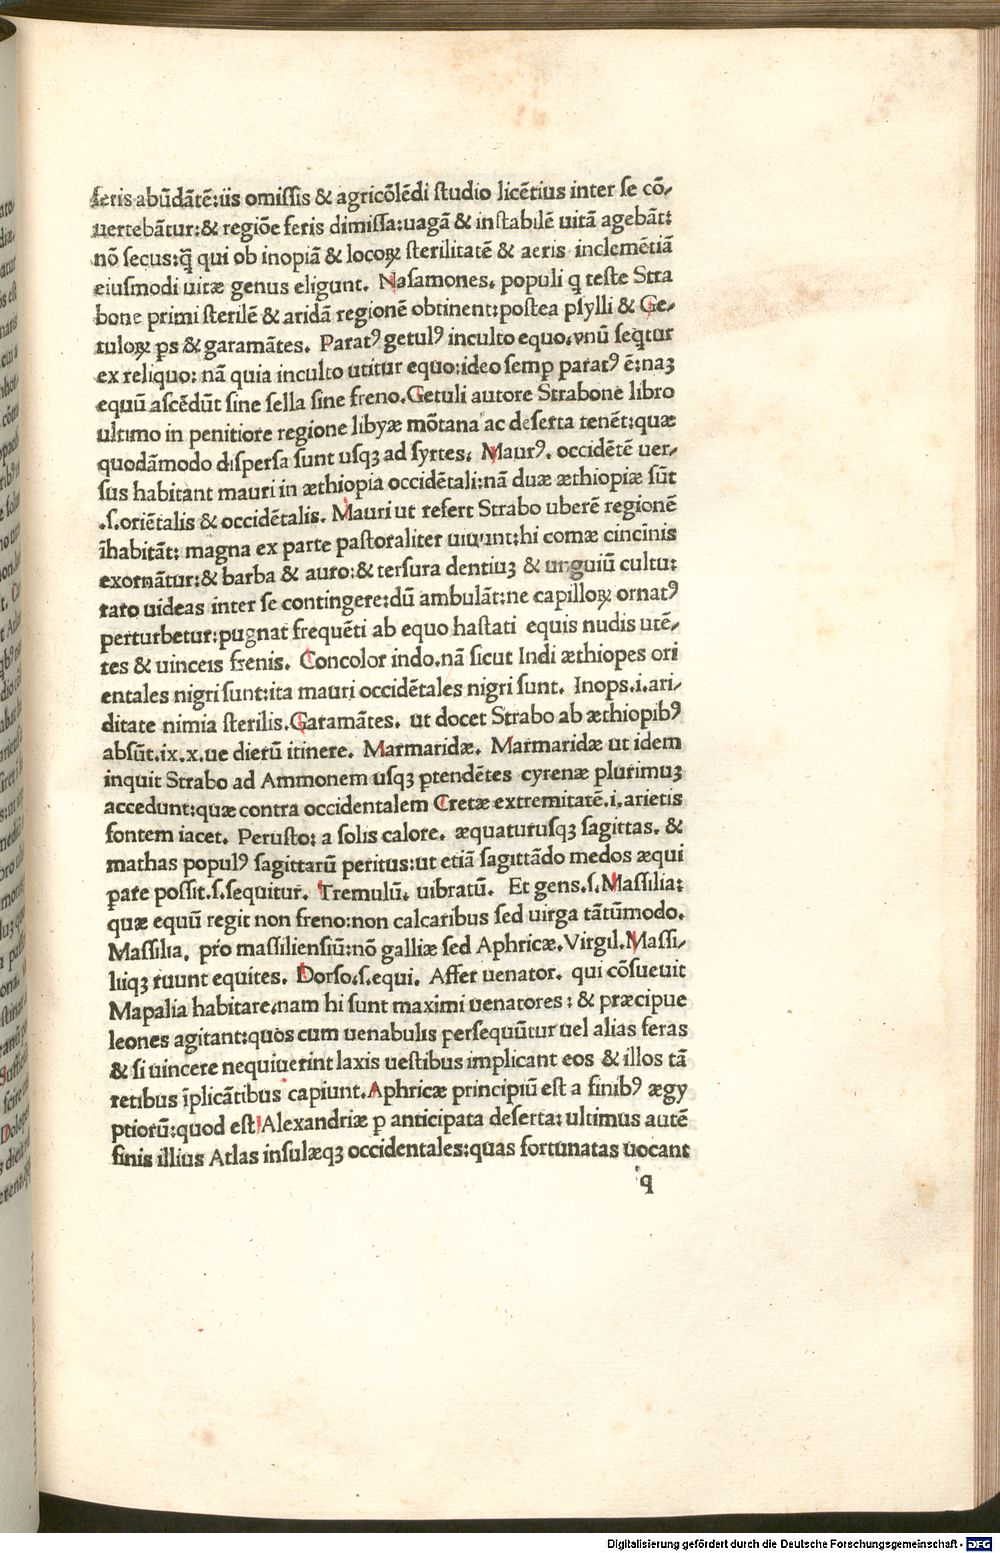 feris abūdātē:iis omissis & agricōlēdi studio licētius inter se cō⸗
uertebātur:& regiōe feris dimissa:uagā & instabilē uitā agebāt:
nō secus:q̄ qui ob inopiā & locoꝝ sterilitatē & aeris inclemētiā
eiusmodi uitæ genus eligunt. Nasamones. populi q teste Stra
bone primi sterilē & aridā regionē obtinent:postea psylli & Ge⸗
tuloꝝ ꝑs & garamātes. Paratꝰ getulꝰ inculto equo.vnū seqtur
ex reliquo: nā quia inculto utitur equo:ideo semp paratꝰ ē:naꝫ
equū ascēdūt sine sella sine freno.Getuli autore Strabone libro
ultimo in penitiore regione libyæ mōtana ac deserta tenēt:quæ
quodāmodo dispersa sunt usqꝫ ad syrtes. Maurꝰ. occidētē uer⸗
sus habitant mauri in æthiopia occidētali:nā duæ æthiopiæ sūt
.s.oriētalis & occidētalis. Mauri ut refert Strabo uberē regionē
īhabitāt: magna ex parte pastoraliter uiuunt:hi comæ cincinis
exornātur:& barba & auro:& tersura dentiuꝫ & unguiū cultu:
raro uideas inter se contingere:dū ambulāt:ne capilloꝝ ornatꝰ
perturbetur:pugnat frequēti ab equo hastati equis nudis utē⸗
tes & uinceis frenis. Concolor indo.nā sicut Indi æthiopes ori
entales nigri sunt:ita mauri occidētales nigri sunt. Inops.i.ari⸗
ditate nimia sterilis.Garamātes. ut docet Strabo ab æthiopibꝰ
absūt.ix.x.ue dierū itinere. Marmaridæ. Marmaridæ ut idem
inquit Strabo ad Ammonem usqꝫ ꝑtendētes cyrenæ plurimuꝫ
accedunt:quæ contra occidentalem Cretæ extremitatē.i.arietis
fontem iacet. Perusto: a solis calore. æquaturusqꝫ sagittas. &
mathas populꝰ sagittarū peritus:ut etiā sagittādo medos æqui
pare possit.s.sequitur. Tremulū. uibratū. Et gens.s.Massilia:
quæ equū regit non freno:non calcaribus sed uirga tātūmodo.
Massilia. pro massiliensiū:nō galliæ sed Aphricæ.Virgil.Massi⸗
liiqꝫ ruunt equites. Dorso.s.equi. Affer uenator. qui cōsueuit
Mapalia habitare.nam hi sunt maximi uenatores : & præcipue
leones agitant:quos cum uenabulis persequūtur uel alias feras
& si uincere nequiuerint laxis uestibus implicant eos & illos tā
retibus īplicātibus capiunt.Aphricæ principiū est a finibꝰ ægy
ptiorū:quod est Alexandriæ ꝑ anticipata deserta: ultimus autē
finis illius Atlas insulæqꝫ occidentales:quas fortunatas uocant
q
Digitalisierung gefördert durch die Deutsche Forschungsgemeinschaft - DFG